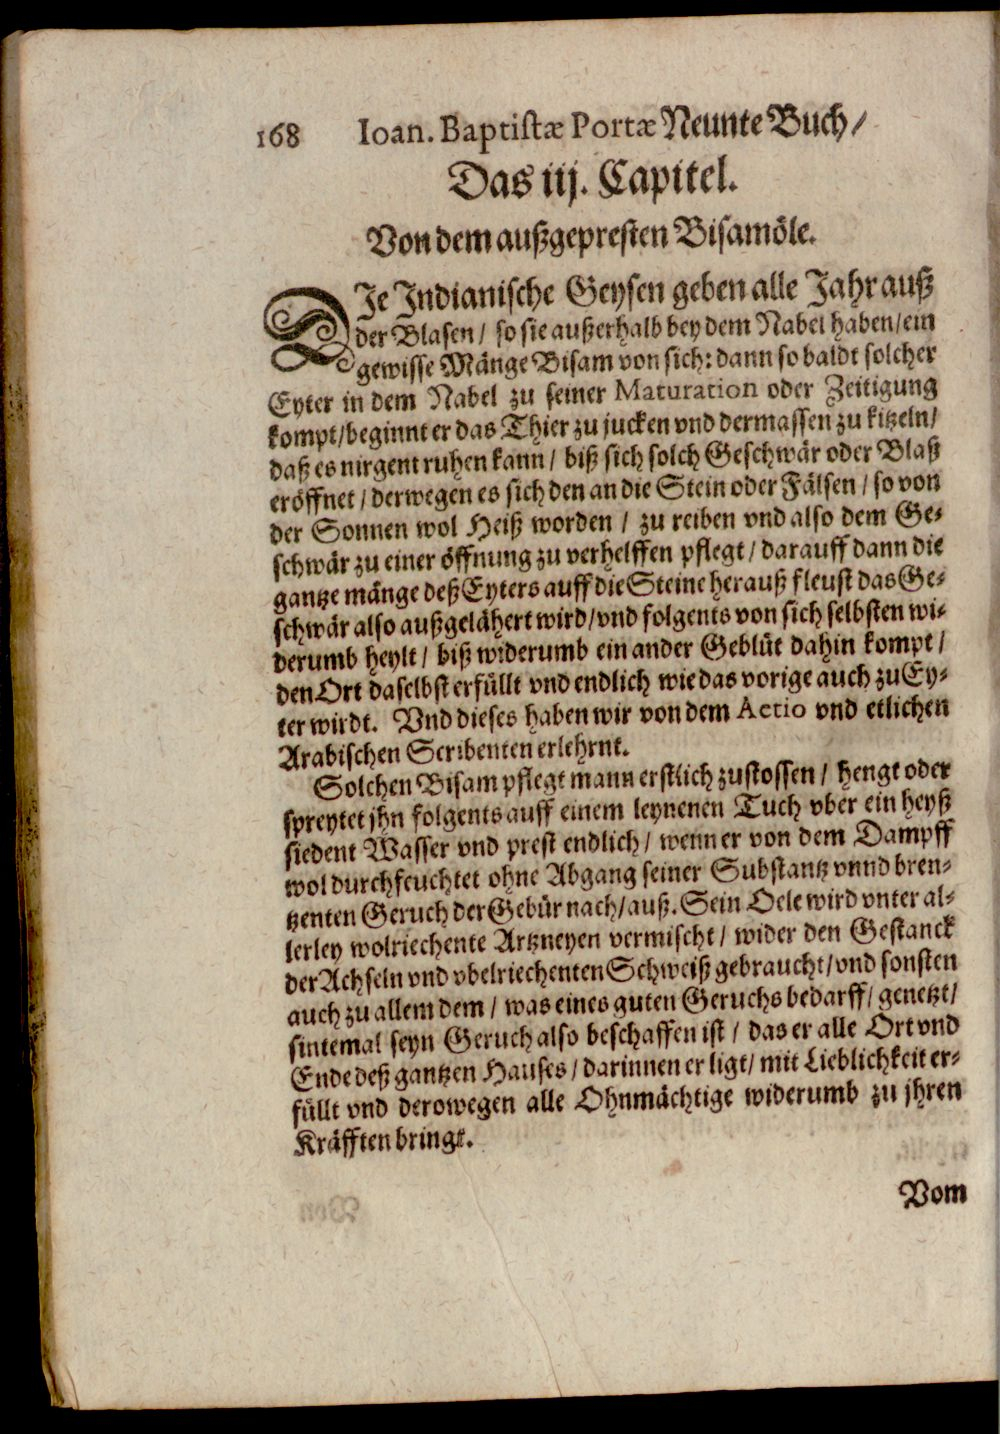 168 Ioan. Baptistæ Portæ Neunte Buch/
Das iij. Capitel.
Von dem außgepresten Bisamöle.
DJe Jndianische Geysen geben alle Jahr auß
der Blasen / so sie außerhalb bey dem Nabel haben/ein
gewisse Mänge Bisam von sich: dann so baldt solcher
Eyter in dem Nabel zu seiner Maturation oder Zeitigung
kompt/beginnt er das Thier zu jucken vnd dermassen zu kitzeln/
daß es nirgent ruhen kann / biß sich solch Geschwär oder Blaß
eröffnet / derwegen es sich den an die Stein oder Fälsen / so von
der Sonnen wol Heiß worden / zu reiben vnd also dem Ge-
schwär zu einer öffnung zu verhelffen pflegt / darauff dann die
gantze mänge deß Eyters auff die Steine herauß fleust das Ge-
schwär also außgelähert wird/vnd folgents von sich selbsten wi-
derumb heylt / biß widerumb ein ander Geblüt dahin kompt /
den Ort daselbst erfüllt vnd endlich wie das vorige auch zu Ey-
ter wirdt. Vnd dieses haben wir von dem Aetio vnd etlichen
Arabischen Scribenten erlehrnt.
Solchen Bisam pflegt mann erstlich zustossen / hengt oder
spreytet jhn folgents auff einem leynenen Tuch vber ein heyß
siedent Wasser vnd prest endlich / wenn er von dem Dampff
wol durchfeuchtet ohne Abgang seiner Substantz vnnd bren-
tzenten Geruch der Gebür nach/auß. Sein Oele wird vnter al-
lerley wolriechente Artzneyen vermischt / wider den Gestanck
der Achseln vnd vbelriechenten Schweiß gebraucht/vnd sonsten
auch zu allem dem / was eines guten Geruchs bedarff / genetzt/
sintemal seyn Geruch also beschaffen ist / das er alle Ort vnd
Ende deß gantzen Hauses / darinnen er ligt/ mit Lieblichkeit er-
füllt vnd derowegen alle Ohnmächtige widerumb zu jhren
Kräfften bringt.
Vom